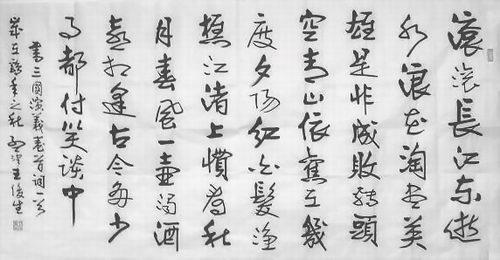 滚滚長江东逝
水浪花淘尽英
雄是非成敗转頭
空青山依舊在幾
度夕阳红白髮渔
樵江渚上慣看秋
月春風一壶濁酒
喜相逢古今多少
事都付笑谈中
書三國演義卷首词一首
歲在年之秋王俊生